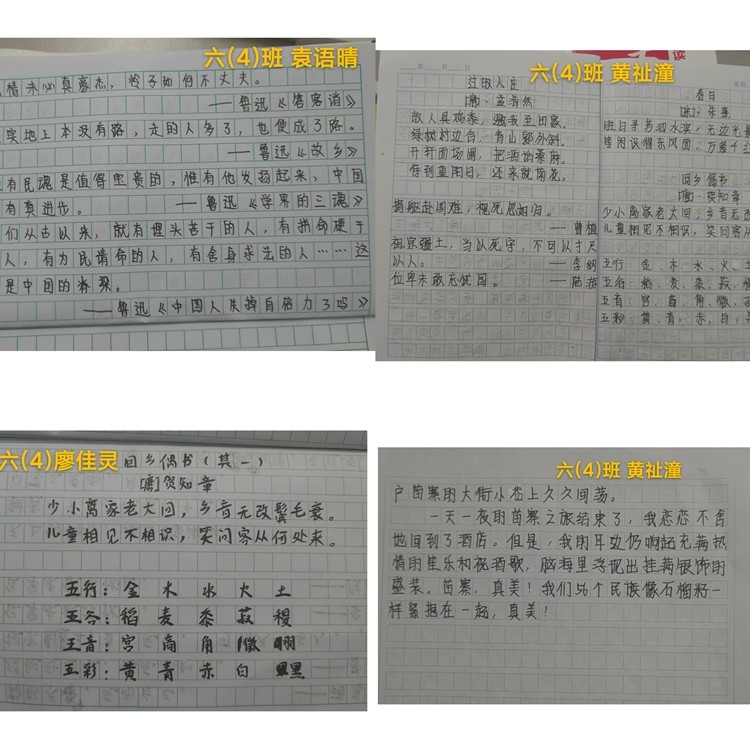 六(4)班 袁语晴
情未必真豪杰，怜子如何不丈夫。
——鲁迅《答客诮》
实地上本没有路，走的人多了，也便成了路。
——鲁迅《故乡》
有民魂是值得宝贵的，惟有他发扬起来，中国
有真进步。 ——鲁迅《学界的三魂》
们从古以来，就有埋头苦干的人，有拼命硬干
人，有为民请命的人，有舍身求法的人……这
是中国的脊梁。
——鲁迅《中国人失掉自信力了吗》
六(4)班 黄祉潼
过故人庄
[唐]·孟浩然
故人具鸡黍，邀我至田家。
绿树村边合，青山郭外斜。
开轩面场圃，把酒话桑麻。
待到重阳日，还来就菊花。
捐躯赴国难，视死忽如归。
——曹植
祖宗疆土，当以死守，不可以寸尺
以人。 ——李纲
位卑未敢忘忧国。 ——陆游
春日
[宋]·朱熹
胜日寻芳泗水滨，无边光景
等闲识得东风面，万紫千红
回乡偶书
[唐]·贺知章
少小离家老大回，乡音无改
儿童相见不相识，笑问客从
五行：金、木、水、火、土
五谷：稻、麦、黍、菽、稷
五音：宫、商、角、徵、羽
五彩：黄、青、赤、白、黑
六(4)廖佳灵
回乡偶书(其一)
[唐]贺知章
少小离家老大回，乡音无改鬓毛衰。
儿童相见不相识，笑问客从何处来。
五行：金 木 水 火 土
五谷：稻 麦 黍 菽 稷
五音：宫 商 角 徵 羽
五彩：黄 青 赤 白 黑
六(4)班 黄祉潼
户苗寨的大街小巷上久久回荡。
一天一夜的苗寨之旅结束了，我恋恋不舍
地回到了酒店。但是，我的耳边仍响起充满热
情的笙乐和祝酒歌，脑海里浮现出挂满银饰的
盛装。苗寨，真美！我们56个民族像石榴籽一
样紧抱在一起，真美！